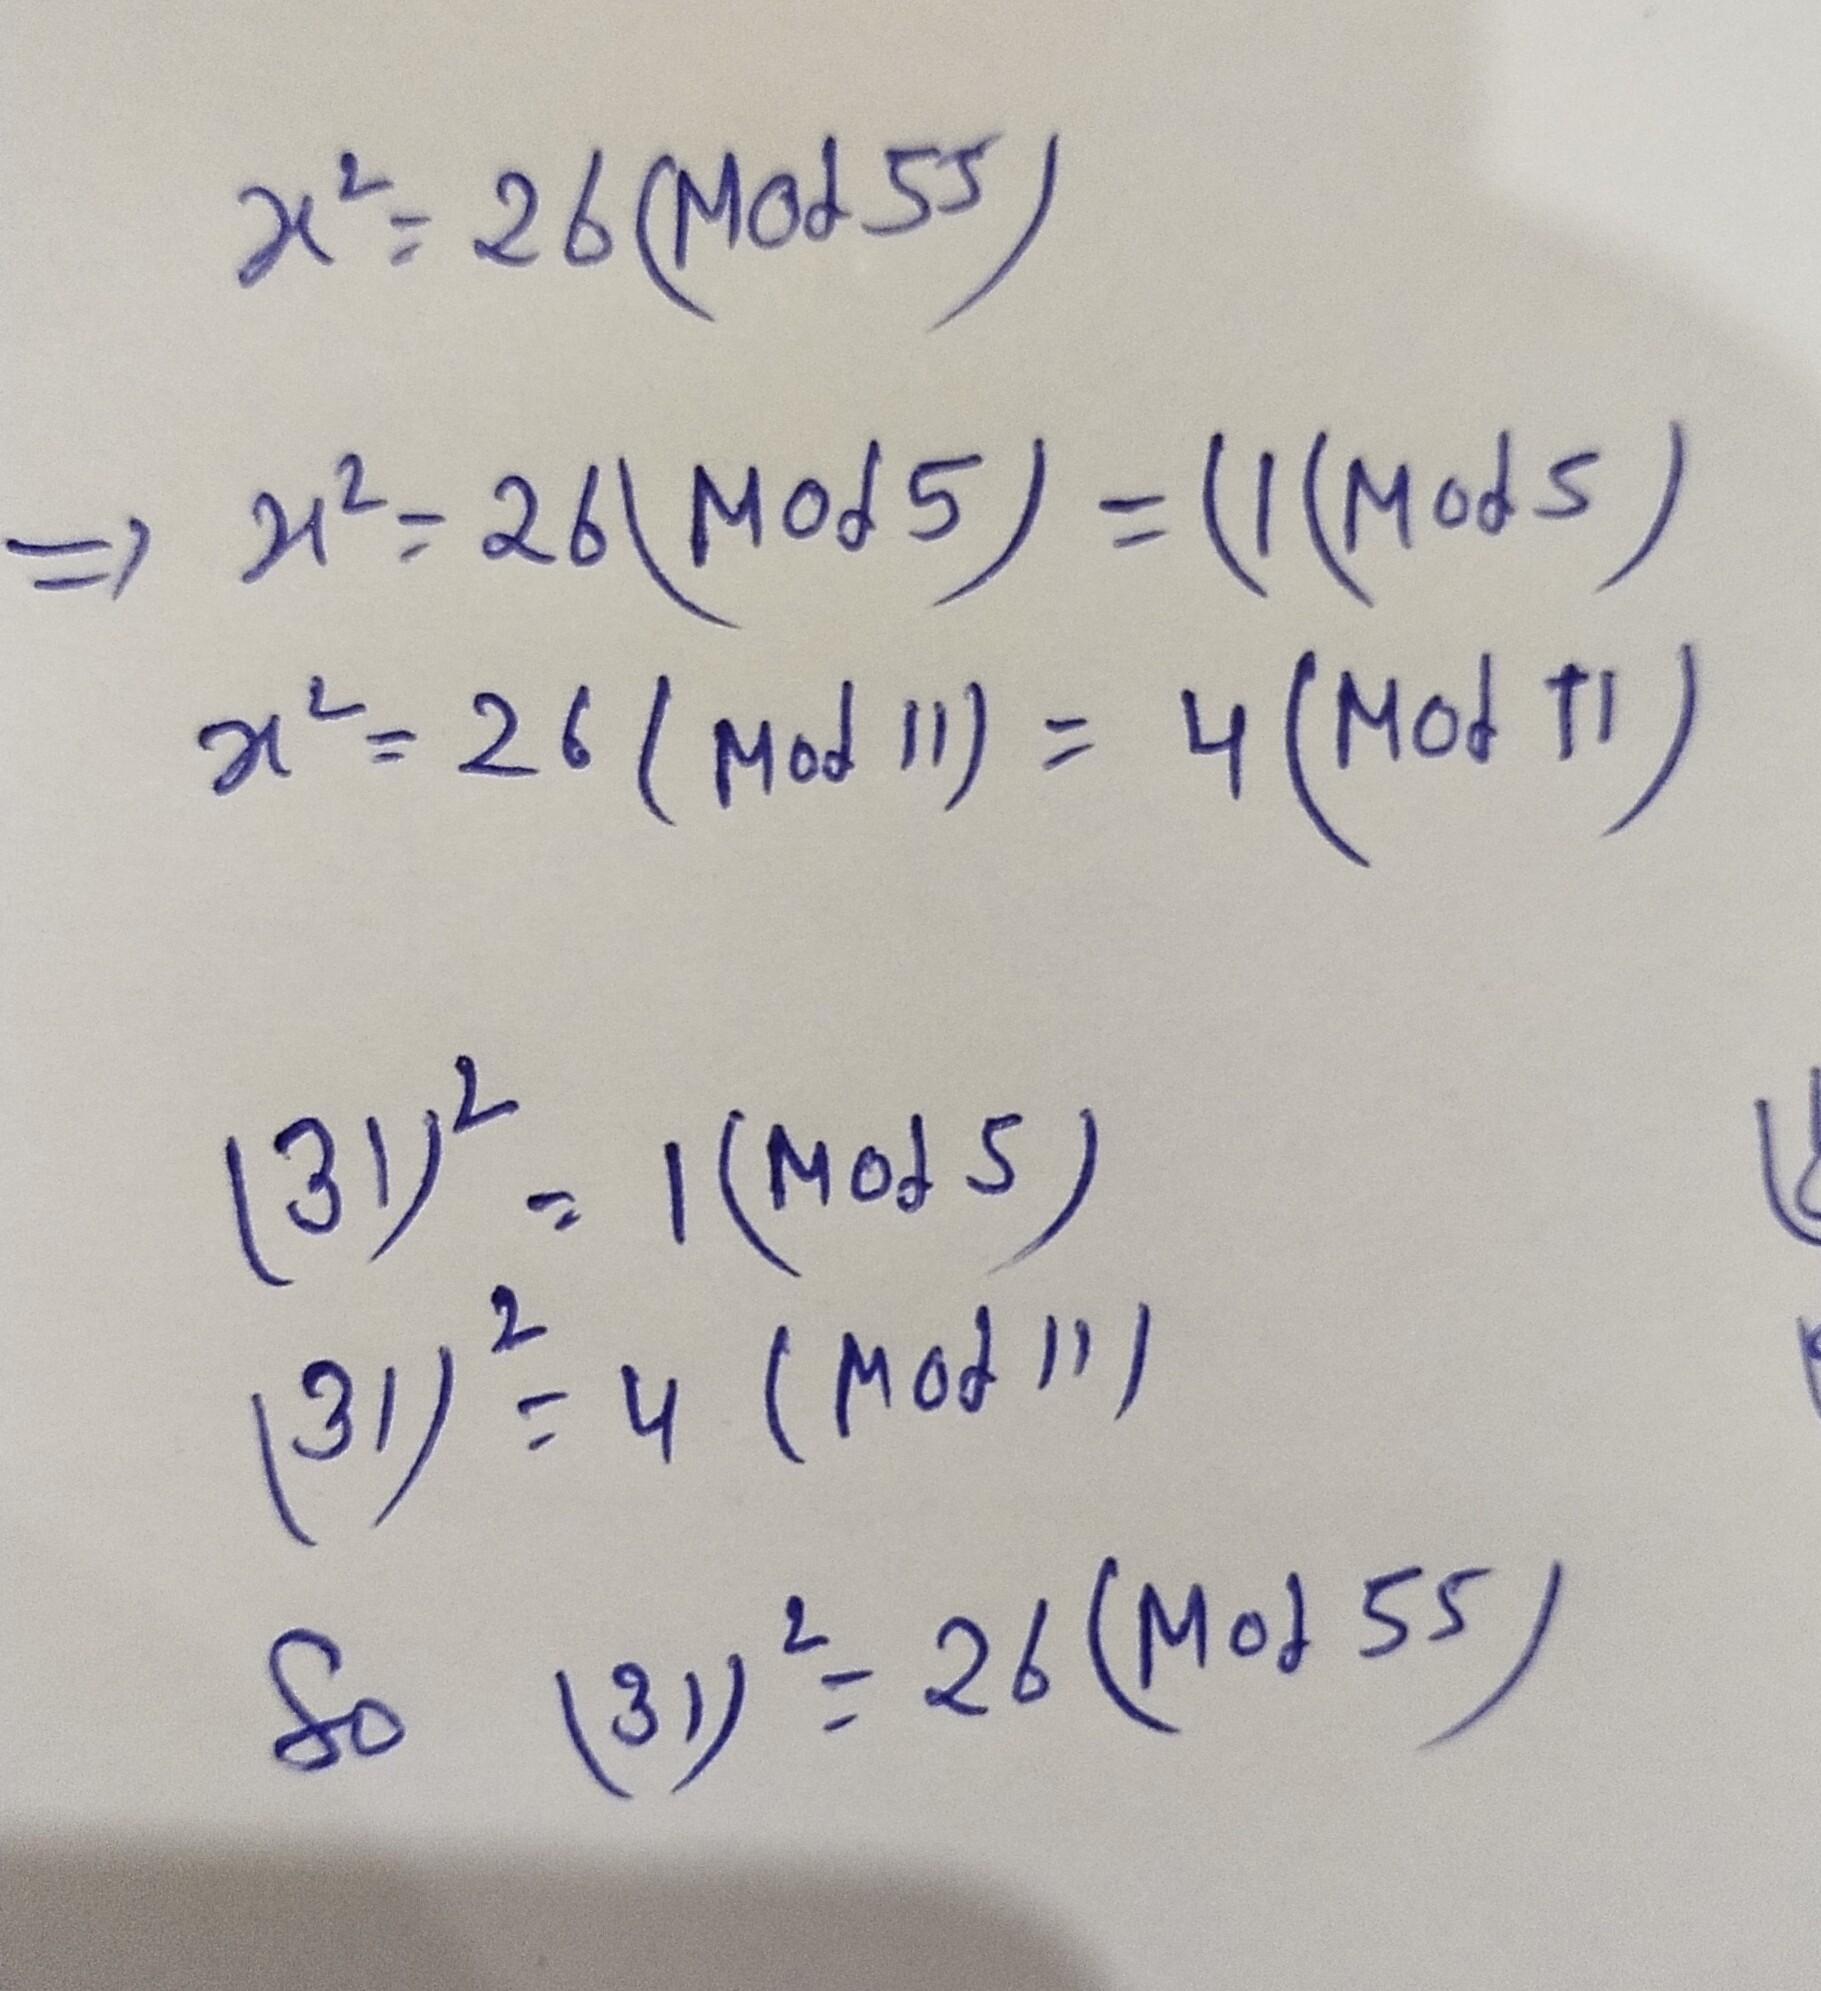 x² = 26 (Mod 55)
=> x² = 26 (Mod 5) = (1 (Mod 5)
x² = 26 (Mod 11) = 4 (Mod 11)
(31)² = 1 (Mod 5)
(31)² = 4 (Mod 11)
So (31)² = 26 (Mod 55)